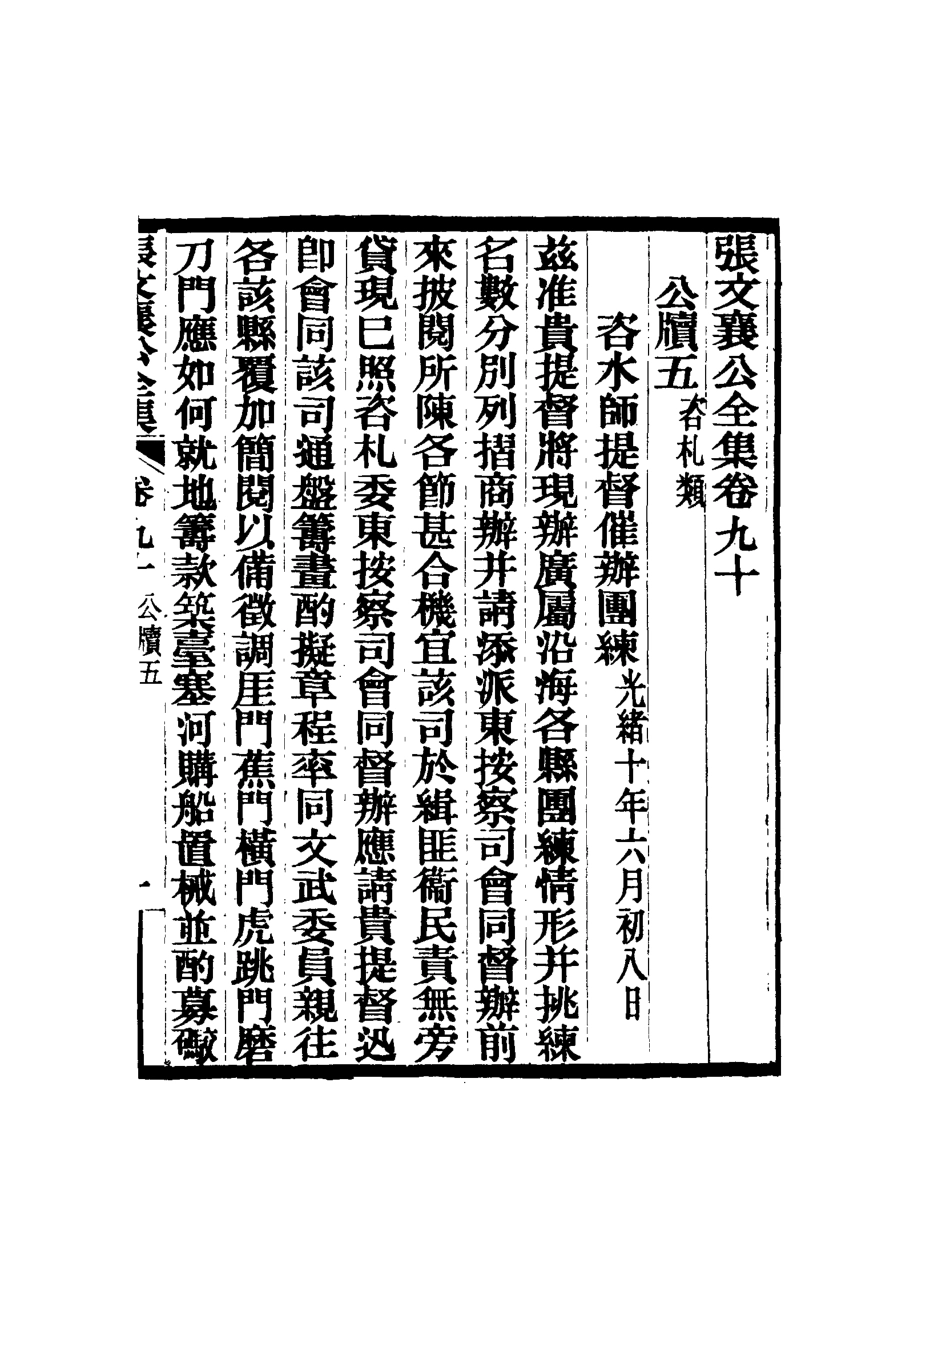 張文襄公全集卷九十
公牘五 咨札類
咨水師提督催辦團練 光緒十年六月初八日
茲准貴提督將現辦廣屬沿海各縣團練情形并挑練
名數分別列摺商辦并請添派東按察司會同督辦前
來披閱所陳各節甚合機宜該司於緝匪衞民責無旁
貸現已照咨札委東按察司會同督辦應請貴提督迅
卽會同該司通盤籌畫酌擬章程率同文武委員親往
各該縣覆加簡閱以備徵調厓門蕉門橫門虎跳門磨
刀門應如何就地籌款築臺塞河購船置械並酌募礮
張文襄公全集 卷九十 公牘五 一